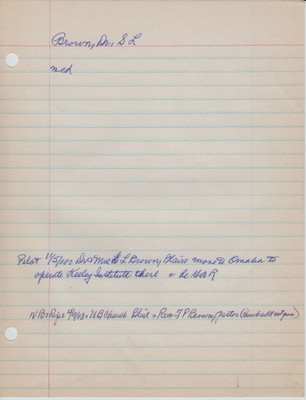 Brown, Dr. S L
med
Pilot 1/5/02 Dr & Mrs S L Brown, Blair move to Omaha to
operate Keeley Institute there
4/9/03 U B Church Blair Rev. T P Brown, pastor